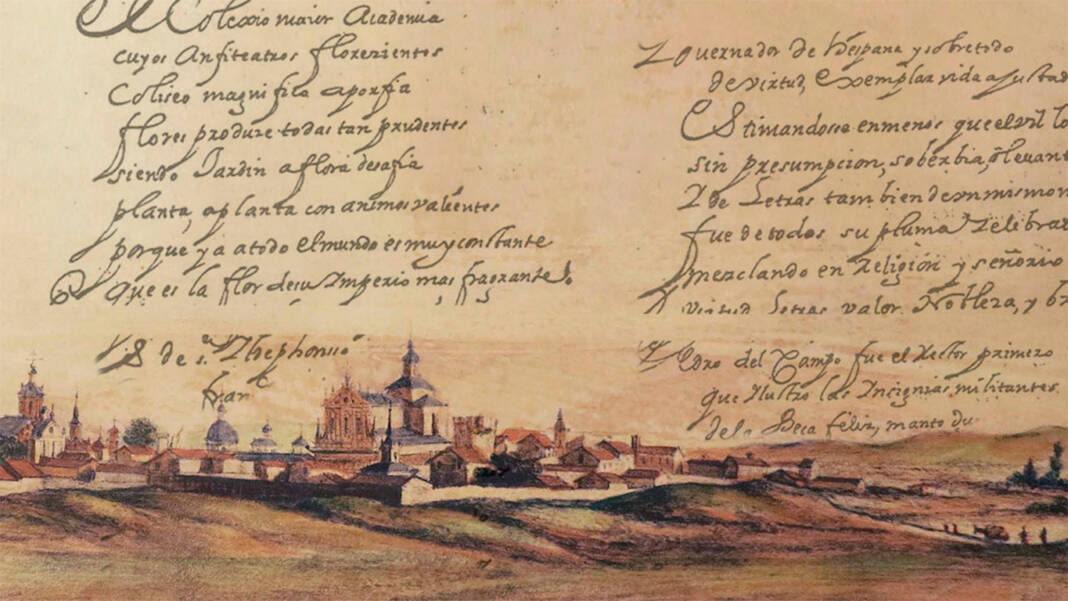 El Colexio maior Academia
cuyos Anfiteatros florezientes
Coliseo magnifico aporfia
flores produze todas tan prudentes
siendo Jardin a flora desafia
planta, aplanta con animos valientes
porque ya atodo el mundo es muy constante
Que es la flor desu Imperio mas fragrante.
S de s.n Ildephonso
fran
Governador de Hespana y sobretodo
de virtud, Exemplar vida ajustad
Estimandose enmenos que el vil lo
sin presumpcion, soberbia,
Y de Letras tambien de un mismo
fue de todos su pluma Zelebrad
mezclando en Religion y señorio
Virtud Letras valor. Nobleza, y
Pedro del Campo fue el Rector primero
que Ilustro las Insignias militantes
dela Beca feliz, manto du